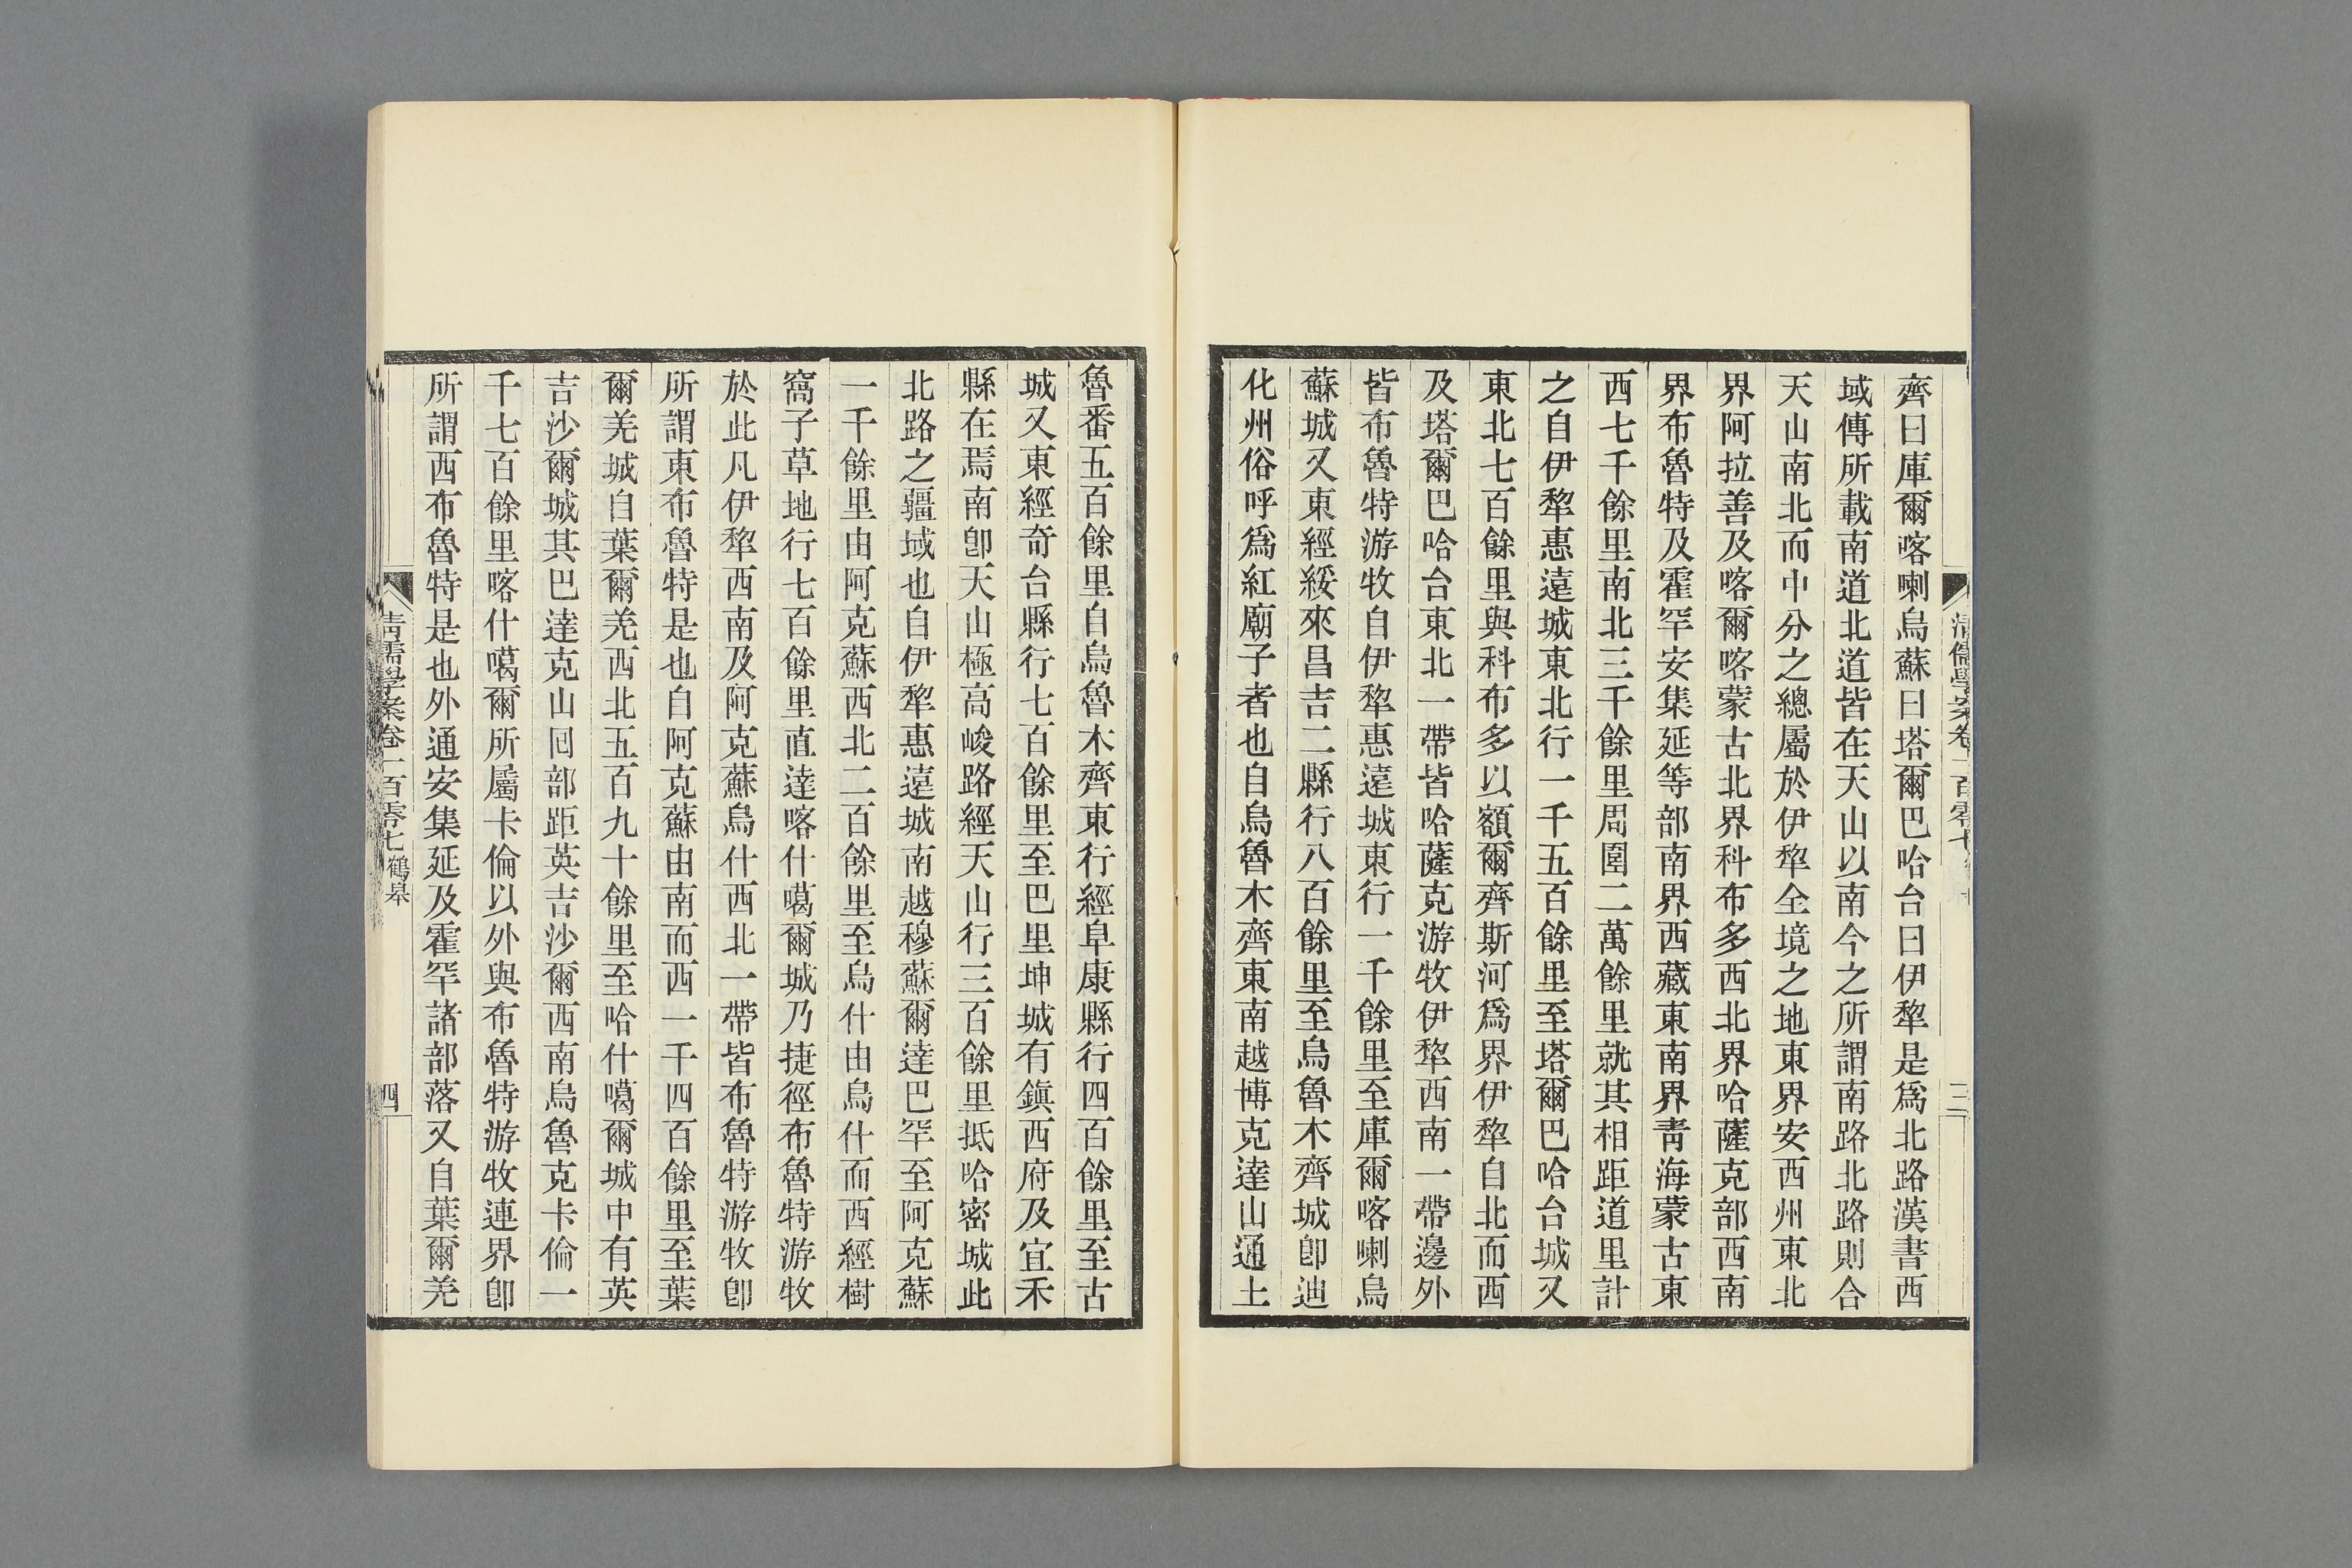 齊曰庫爾喀喇烏蘇曰塔爾巴哈台曰伊犂是爲北路漢書西
域傳所載南道北道皆在天山以南今之所謂南路北路則合
天山南北而中分之總屬於伊犂全境之地東界安西州東北
界阿拉善及喀爾喀蒙古北界科布多西北界哈薩克部西南
界布魯特及霍罕安集延等部南界西藏東南界靑海蒙古東
西七千餘里南北三千餘里周圍二萬餘里就其相距道里計
之自伊犂惠遠城東北行一千五百餘里至塔爾巴哈台城又
東北七百餘里與科布多以額爾齊斯河爲界伊犂自北而西
及塔爾巴哈台東北一帶皆哈薩克游牧伊犂西南一帶邊外
皆布魯特游牧自伊犂惠遠城東行一千餘里至庫爾喀喇烏
蘇城又東經綏來昌吉二縣行八百餘里至烏魯木齊城卽迪
化州俗呼爲紅廟子者也自烏魯木齊東南越博克達山通土
魯番五百餘里自烏魯木齊東行經阜康縣行四百餘里至古
城又東經奇台縣行七百餘里至巴里坤城有鎭西府及宜禾
縣在焉南卽天山極高峻路經天山行三百餘里抵哈密城此
北路之疆域也自伊犂惠遠城南越穆蘇爾達巴罕至阿克蘇
一千餘里由阿克蘇西北二百餘里至烏什由烏什而西經樹
窩子草地行七百餘里直達喀什噶爾城乃捷徑布魯特游牧
於此凡伊犂西南及阿克蘇烏什西北一帶皆布魯特游牧卽
所謂東布魯特是也自阿克蘇由南而西一千四百餘里至葉
爾羌城自葉爾羌西北五百九十餘里至哈什噶爾城中有英
吉沙爾城其巴達克山回部距英吉沙爾西南烏魯克卡倫一
千七百餘里喀什噶爾所屬卡倫以外與布魯特游牧連界卽
所謂西布魯特是也外通安集延及霍罕諸部落又自葉爾羌
清儒學案卷一百零七 鶴皋
四